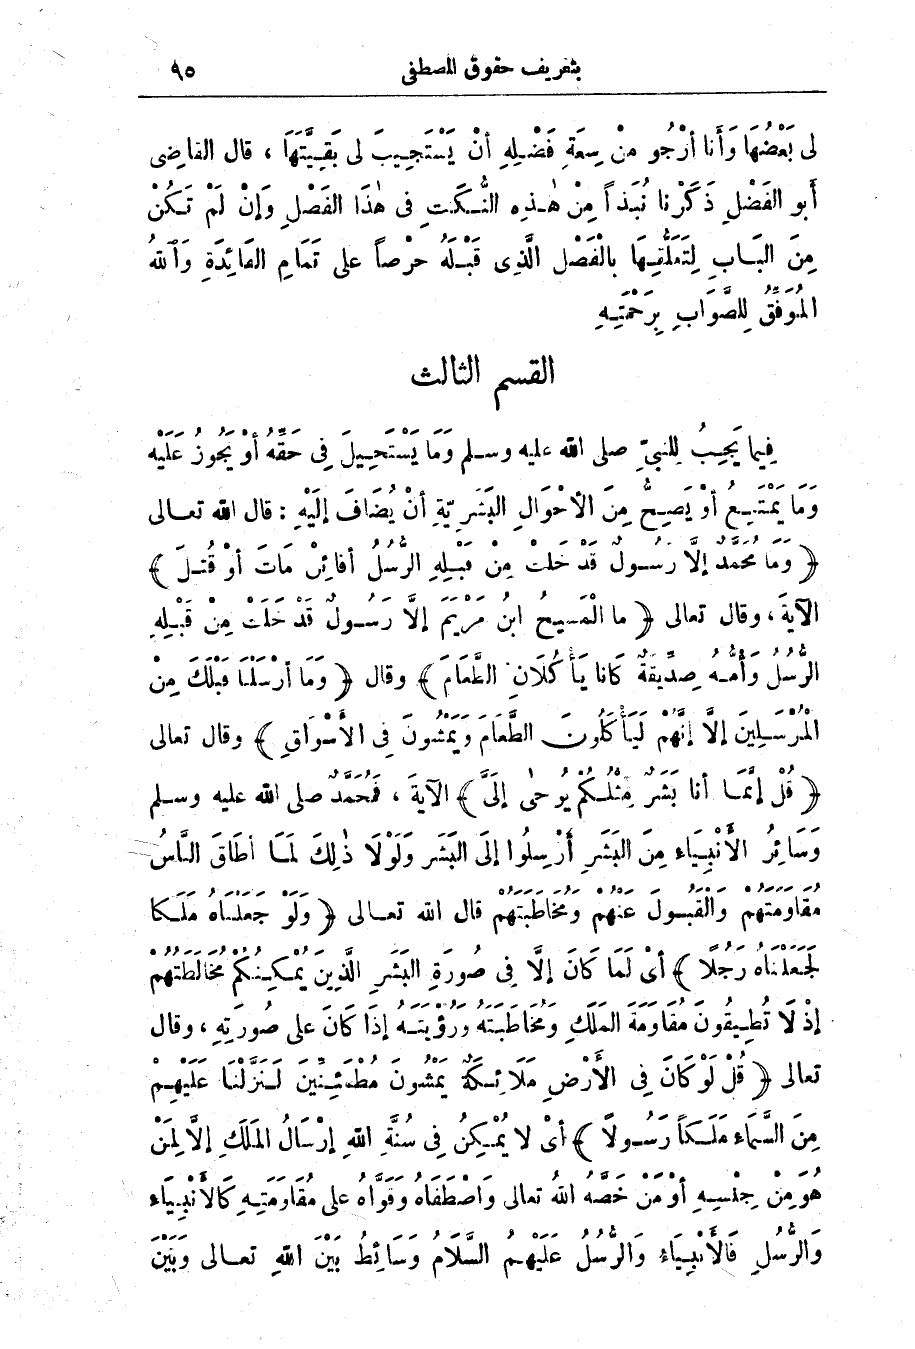 بتعريف حقوق المصطفى ٩٥
لِى بَعْضُهَا وَأَنا أرْجُو مِنْ سِعَةِ فَضْلِهِ أنْ يَسْتَجِيبَ لِى بَقِيَّتَهَا ، قال القاضِى
أَبو الفَضْلِ ذَكَرْنا نُبَذاً مِنْ هٰذِهِ النُّكَتِ فِى هٰذَا الفَصْلِ وَإِنْ لَمْ تَكُنْ
مِنَ البَابِ لِتَعَلُّقِهَا بالْفَصْلِ الَّذِى قَبْلَهُ حِرْصاً على تَمَامِ الفَائِدَةِ وَاللهُ
المُوَفِّقُ لِلصَّوَابِ بِرَحْمَتِهِ
القسم الثالث
فِيما يَجِبُ لِلنبيِّ صلى الله عليه وسلم وَمَا يَسْتَحِيلُ فِى حَقِّهُ أَوْ يَجُوزُ عَلَيْهِ
وَمَا يَمْتَنِعُ أَوْ يَصِحُّ مِنَ الأحْوَالِ البَشَرِيّةِ أنْ يُضَافَ إِلَيْهِ : قال الله تعالى
﴿ وَمَا مُحَمَّدٌ إلَّا رَسُولٌ قَدْ خَلَتْ مِنْ قَبْلِهِ الرُّسُلُ أفائِنْ مَاتَ أوْ قُتِلَ ﴾
الآيَةَ ، وقال تعالى ﴿ ما الْمَسِيحُ ابنُ مَرْيَمَ إلَّا رَسُولٌ قَدْ خَلَتْ مِنْ قَبْلِهِ
الرُّسُلُ وَأُمُّهُ صِدِّيقَةٌ كَانا يَأْكُلَانِ الطَّعَامَ ﴾ وقال ﴿ وَمَا أرْسَلْنَا قَبْلَكَ مِنَ
الْمُرْسَلِينَ إلَّا إنَّهُمْ لَيَأْكُلُونَ الطَّعَامَ وَيَمْشُونَ فِى الأَسْوَاقِ ﴾ وقال تعالى
﴿ قُلْ إنَّمَا أنا بَشَرٌ مِثْلُكُمْ يُوحٰى إلَىَّ ﴾ الآيَةَ ، فَمُحَمَّدٌ صلى الله عليه وسلم
وَسَائِرُ الأَنْبِيَاءِ مِنَ البَشَرِ أُرْسِلُوا إلَى البَشَرِ وَلَوْلَا ذٰلِكَ لَمَا أطَاقَ النَّاسُ
مُقَاوَمَتَهُمْ وَالْقَبُولَ عَنْهُمْ وَمُخَاطَبَتَهُمْ قال الله تعالى ﴿ وَلَوْ جَعَلْنَاهُ مَلَكا
لَجَعَلْنَاهُ رَجُلًا ﴾ أىْ لَمَا كَانَ إلَّا فِى صُورَةِ البَشَرِ الَّذِينَ يُمْكِنُكُمْ مُخَالَطَتُهُمْ
إذْ لَا تُطِيقُونَ مُقَاوَمَةَ المَلَكِ وَمُخَاطَبَتَهُ وَرُؤْيَتَهُ إذَا كَانَ على صُورَتِهِ ، وقال
تعالى ﴿ قُلْ لَوْ كَانَ فِى الأَرْضِ مَلَائِكَةٌ يَمْشُونَ مُطْمَئِنِّينَ لَنَزَّلْنَا عَلَيْهِمْ
مِنَ السَّمَاءِ مَلَكاً رَسُولًا ﴾ أىْ لا يُمْكِنُ فِى سُنَّةِ اللهِ إرْسَالُ المَلَكِ إلَّا لِمَنْ
هُوَ مِنْ جِنْسِهِ أوْ مَنْ خَصَّهُ اللهُ تعالى وَاصْطَفَاهُ وَقَوَّاهُ على مُقَاوَمَتِهِ كَالأَنْبِيَاءِ
وَالرُّسُلِ فَالأَنْبِيَاءُ وَالرُّسُلُ عَلَيْهِمُ السَّلَامُ وَسَائِطُ بَيْنَ اللهِ تعالى وَبَيْنَ